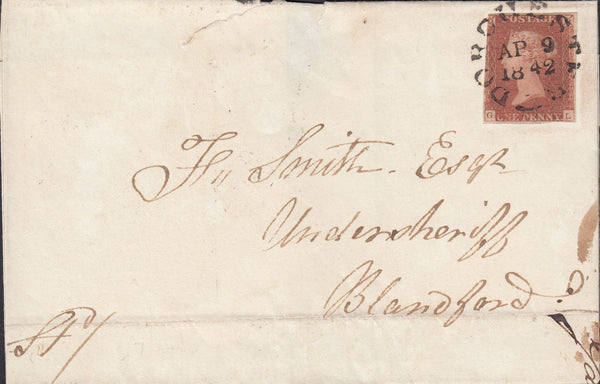 DORCHESTER
AP 9
1842
POSTAGE
G ONE PENNY L
Smith. Esqr
Undersheriff
Blandford